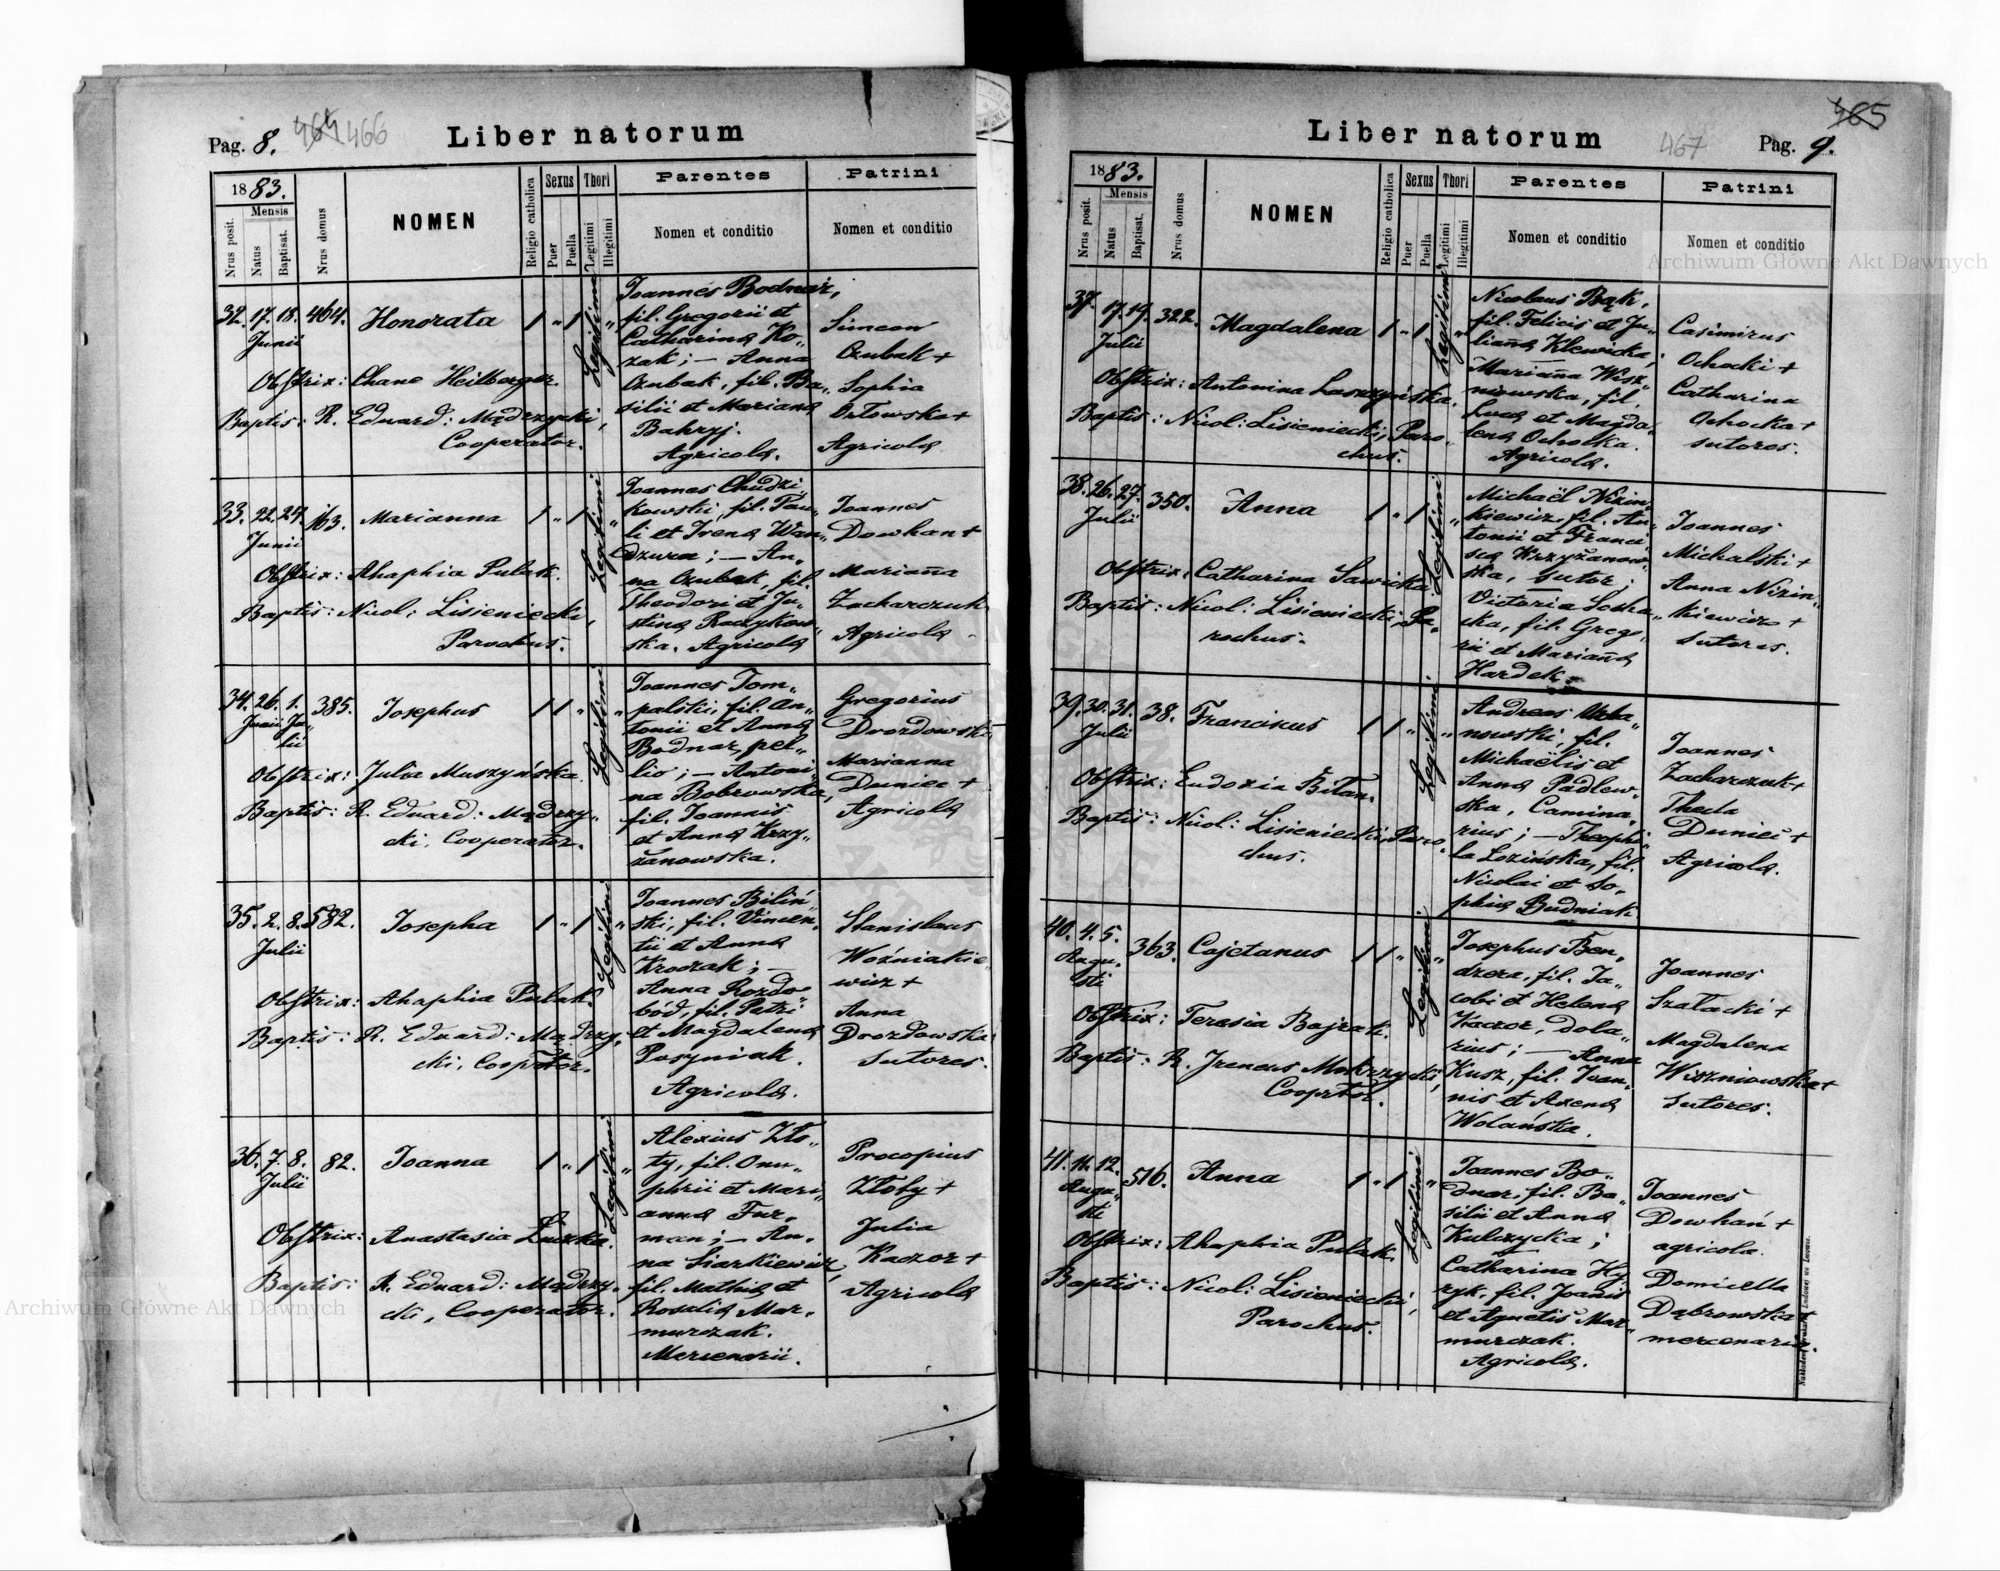 Pag. 8.
464 466
Liber natorum
1883.
Nrus posit.
Mensis
Natus
Baptisat.
Nrus domus
NOMEN
Religio catholica
Sexus
Puer
Puella
Thori
Legitimi
Illegitimi
Parentes
Nomen et conditio
Patrini
Nomen et conditio
32. 17. 18. 464. Honorata 1 " 1 Legitimi "
Junii
Obstrix: Chane Heilberger.
Baptis: R. Eduard: Mądrzycki,
Cooperator.
Joannes Bodnar,
fil. Gregorii et
Catharina Ko„
zak; — Anna
Czubak, fil. Ba„
silii et Marianna
Bahryj.
Agricola.
Simeon
Czubak +
Sophia
Orłowska +
Agricola
33. 22. 24. 163. Marianna 1 " 1 Legitimi "
Junii
Obstrix: Ahaphia Pulak.
Baptis: Nicol: Lisieniecki,
Parochus.
Joannes Chudzi„
kowski, fil. Pau„
li et Irena Wan„
dzura; — An„
na Czubak, fil.
Theodori et Ju„
stina Raczykow„
ska. Agricola
Joannes
Dowhan +
Marianna
Zacharczuk
Agricola
34. 26. 1. 385. Josephus 1 1 " Legitimi "
Junii Ju„
lii
Obstrix: Julia Muszyńska
Baptis: R. Eduard: Mądrzy„
cki, Cooperator.
Joannes Tom„
palski, fil. An„
tonii et Anna
Bodnar, pel„
lio; — Antoni„
na Bobrowska,
fil. Joannis
et Anna Krzy„
żanowska.
Gregorius
Drozdowski
Marianna
Duniec +
Agricola
35. 2. 8. 582. Josepha 1 " 1 Legitimi "
Julii
Obstrix: Ahaphia Pulak.
Baptis: R. Eduard: Mądrzy„
cki, Cooptor.
Joannes Biliń„
ski, fil. Vincen„
tii et Anna
Kroczak; —
Anna Rozdo„
bód, fil. Patri
et Magdalena
Posyniak.
Agricola.
Stanislaus
Woźniakie„
wicz +
Anna
Drozdowska
Sutores.
36. 7. 8. 82. Joanna 1 " 1 Legitimi "
Julii
Obstrix: Anastasia
Baptis: R. Eduard: Mądrzy„
cki, Cooperator.
Alexius Zło„
ty, fil. Onu„
phrii et Mari„
anna Fur„
man; — An„
na Siarkiewicz,
fil. Mathia et
Rosalia Mar„
murczak.
Mercenarii.
Procopius
Złoty +
Julia
Kaczor +
Agricola
Liber natorum
467
465
Pag. 9.
1883.
Nrus posit.
Mensis
Natus
Baptisat.
Nrus domus
NOMEN
Religio catholica
Sexus
Puer
Puella
Thori
Legitimi
Illegitimi
Parentes
Nomen et conditio
Patrini
Nomen et conditio
37. 17. 19. 322. Magdalena 1 " 1 Legitimi "
Julii
Obstrix: Antonina Laszyńska.
Baptis: Nicol: Lisieniecki, Paro„
chus.
Nicolaus Bąk,
fil. Felicis et Ju„
lianna Klewicka;
Marianna Wisz„
niowska, fil
Luca et Magda„
lena Ochocka.
Agricola.
Casimirus
Ochocki +
Catharina
Ochocka +
sutores.
38. 26. 27. 350. Anna 1 " 1 Legitimi "
Julii
Obstrix: Catharina Sawicka
Baptis: Nicol: Lisieniecki, Pa„
rochus.
Michaël Nizin„
kiewicz, fil. An„
tonii et Franci„
sca Krzyżanow„
ska, sutor;
Victoria Socha„
cka, fil. Grego„
rii et Marianna
Hardek.
Joannes
Michalski +
Anna Nizin„
kiewicz +
Sutores.
39. 30. 31. 38. Franciscus 1 1 " Legitimi "
Julii
Obstrix: Eudoxia Biłan.
Baptis: Nicol: Lisieniecki, Paro„
chus.
Andreas Urba„
nowski, fil.
Michaëlis et
Anna Padlew„
ska, Camina„
rius; — Theophi„
la Łozińska, fil.
Nicolai et So„
phia Budniak
Joannes
Zacharczuk +
Thecla
Duniec +
Agricola.
40. 4. 5. 363. Cajetanus 1 1 " Legitimi "
Augu„
sti
Obstrix: Teresia Bajzak.
Baptis: R. Ireneus Mokrzycki,
Cooprtor.
Josephus Ben„
dzera, fil. Ja„
cobi et Helena
Kaczor, dola„
rius; — Anna
Kusz, fil. Joan„
nis et Axena
Wolańska.
Joannes
Szałacki +
Magdalena
Wiszniowska +
Sutores.
41. 11. 12. 516. Anna 1 " 1 Legitimi "
Augu„
sti
Obstrix: Ahaphia Pulak.
Baptis: Nicol: Lisieniecki,
Parochus.
Joannes Bo„
dnar, fil. Ba„
silii et Anna
Kulczycka;
Catharina Hy„
zyk, fil. Joanis
et Agnetis Mar„
murczak.
Agricola.
Joannes
Dowhań +
agricola.
Domicella
Dąbrowska
mercenaria.
Archiwum Główne Akt Dawnych
Archiwum Główne Akt Dawnych